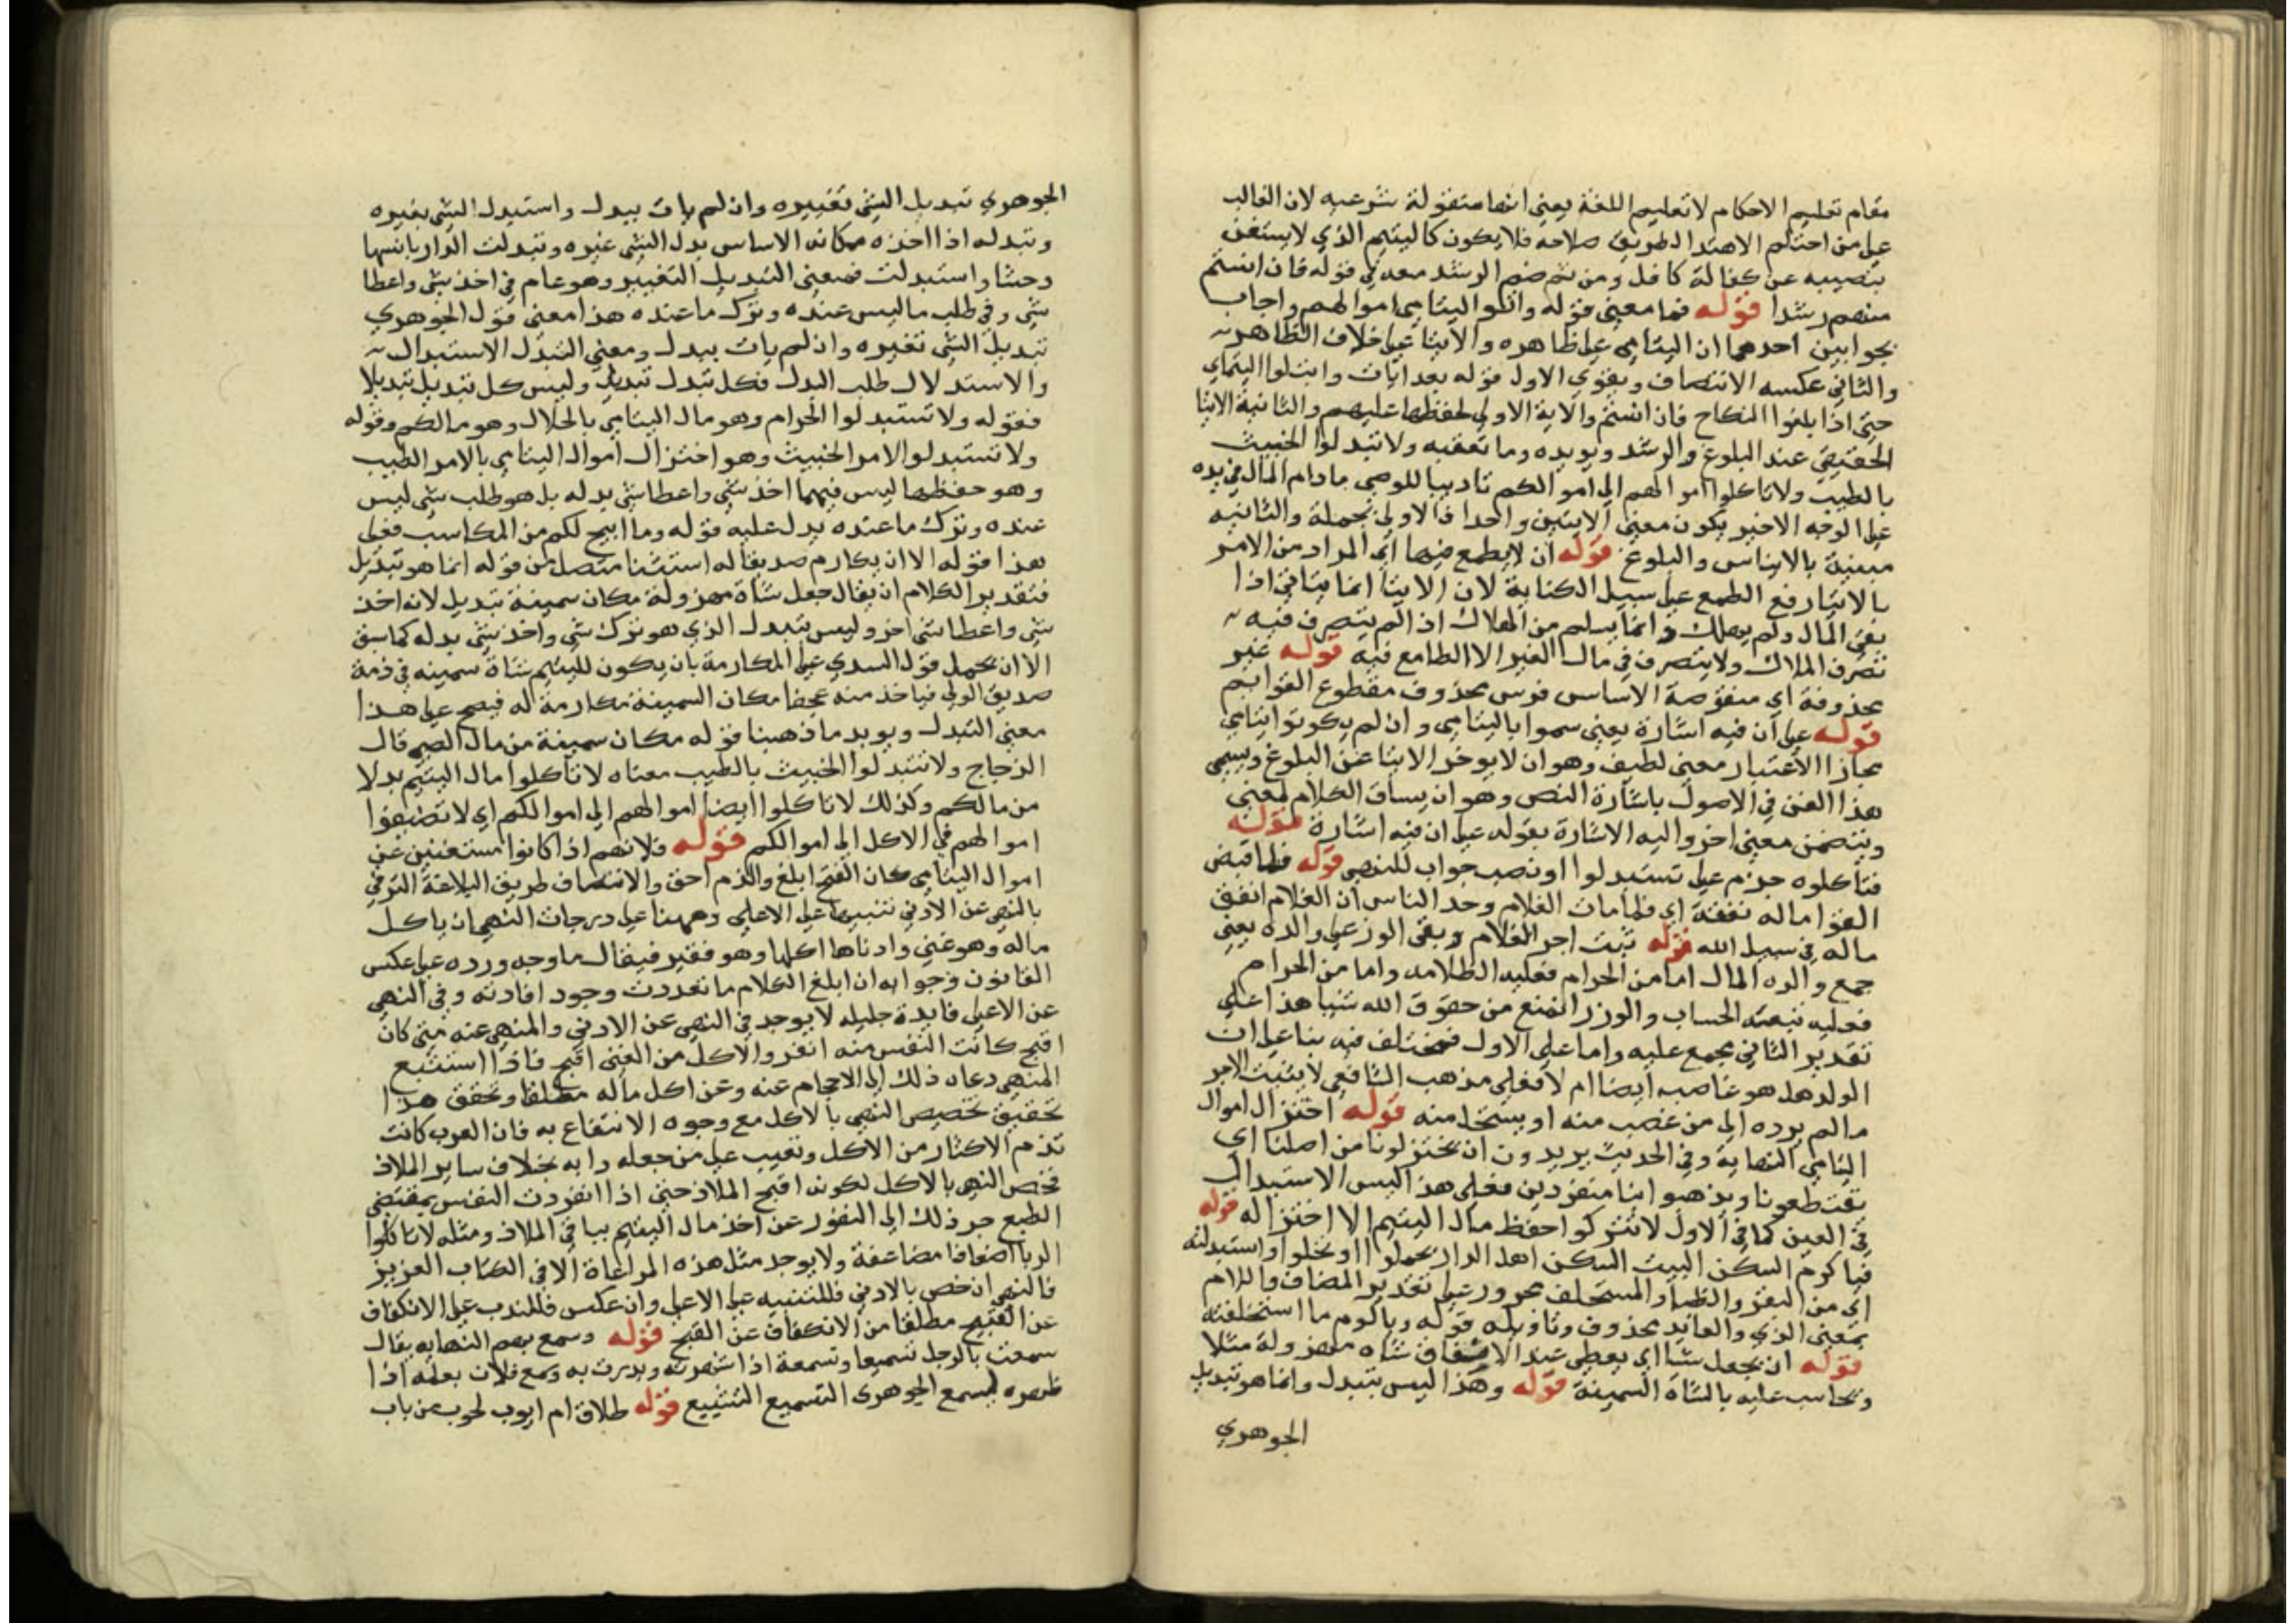 مقام تعليم الاحكام لا تعليم اللغة يعني انها منقولة شرعيه لان الغالب
على من احتلم الاهتدا لطريق صلاحه فلا يكون كاليتيم الذي لا يستغنى
بنصيبه عن كفالة كافل ومن ثم ضم الرشد معه في قوله فان انستم
منهم رشدا قوله فما معنى قوله واتوا اليتامى اموالهم واجاب
بجوابين احدهما ان اليتامى على ظاهره والايتا على خلاف الظاهر
والثاني عكسه الانتصاف ويقوي الاول قوله بعد ايات وابتلوا اليتامى
حتى اذا بلغوا النكاح فان انستم والاية الاولى لحفظها عليهم والثانية الايتا
الحقيقي عند البلوغ والرشد ويويده وما تعقبه ولا تتبدلوا الخبيث
بالطيب ولا تاكلوا اموالهم الى اموالكم تاديبا للوصي مادام المال في يده
على الوجه الاخير يكون معنى الايتين واحدا فالاولى مجملة والثانيه
مبينة بالايناس والبلوغ قوله ان لا يطمع فيها اي المراد من الامر
بالايتا رفع الطمع على سبيل الكناية لان الايتا انما يتاتى اذا
بقي المال ولم يهلك وانما يسلم من الهلاك اذا لم يتصرف فيه
تصرف الملاك ولا يتصرف في مال الغير الا الطامع فيه قوله غير
محذوفة اي منقوصة الاساس فرس محذوف مقطوع القوايم
قوله على ان فيه اشارة يعني سموا باليتامى وان لم يكونوا يتامى
مجازا لاعتبار معنى لطيف وهو ان لا يوخر الايتا عن البلوغ ويسمى
هذا الفن في الاصول باشارة النص وهو ان يساق الكلام لمعنى
ويتضمن معنى اخر واليه الاشارة بقوله على ان فيه اشارة قوله
فتاكلوه جزم على تستبدلوا او نصب جواب للنهي قوله فلما قبض
الفتى ماله نفقه اي فلما مات الغلام وجد الناس ان الغلام انفق
ماله في سبيل الله قوله ثبت اجر الغلام وبقي الوزر على والده يعني
جمع والده المال اما من الحرام فعليه الظلامه واما من الحرام
فعليه تبعته الحساب والوزر المنع من حقوق الله شيا هذا على
تقدير الثاني مجمع عليه واما على الاول فمختلف فيه بنا على ان
الولد هل هو غاصبه ايضا ام لا فعلى مذهب الشافعي لا يثبت الاجر
مالم يرده الى من غصب منه او يستحل منه قوله اختزال اموال
اليتامى النهاية وفي الحديث يريدون ان يختزلونا من اصلنا اي
يقتطعونا ويذهبوا بنا منفردين فعلى هذا ليس الاستبدال
في العين كما في الاول لا تتركوا حفظ مال اليتيم الا اختزاله قوله
فيا كرم السكن البيت السكن اهل الدار تحملوا اي وتخلوا واستبدلته
اي من البقر والظبا والمستخلف مجرور على تقدير المضاف واللام
بمعنى الذي والعايد محذوف وتاويله قوله وياكرم ما استخلفته
قوله ان يجعل شا اي يعطى عند الاستحقاق شاه مهزولة مثلا
ويحاسب عليه بالشاة السمينة قوله وهذا ليس بتبدل وانما هو تبديل
الجوهري
الجوهري تبديل الشي تغييره وان لم يات ببدل واستبدل الشي بغيره
وتبدله اذا اخذه مكانه الاساس بدل الشي غيره وتبدلت الدار بانسها
وحشا واستبدلت فمعنى التبديل التغيير وهو عام في اخذ شي واعطا
شي وفي طلب ما ليس عنده وترك ما عنده هذا معنى قول الجوهري
تبديل الشي تغييره وان لم يات ببدل ومعنى التبدل الاستبدال
والاستبدال طلب البدل فكل تبدل تبديل وليس كل تبديل تبدلا
فقوله ولا تستبدلوا الحرام وهو مال اليتامى بالحلال وهو مالكم وقوله
ولا تستبدلوا الامر الخبيث وهو اختزال اموال اليتامى بالامر الطيب
وهو حفظها ليس فيهما اخذ شي واعطا شي بدله بل هو طلب شي ليس
عنده وترك ما عنده يدل عليه قوله وما ابيح لكم من المكاسب فعلى
هذا قوله الا ان يكارم صديقا له استثنا متصل من قوله انما هو تبديل
فتقدير الكلام ان يقال جعل شاة مهزولة مكان سمينة تبديل لانه اخذ
شي واعطا شي اخر وليس بتبدل الذي هو ترك شي واخذ شي بدله كما سبق
الا ان يحمل قول السدي على المكارمة بان يكون لليتيم شاة سمينه في ذمة
صديق الولي فياخذ منه عجفا مكان السمينة مكارمة له فيصح على هذا
معنى التبدل ويويد ما ذهبنا قوله مكان سمينة من مال الصبي قال
الزجاج ولا تتبدلوا الخبيث بالطيب معناه لا تاكلوا مال اليتيم بدلا
من مالكم وكذلك لا تاكلوا ايضا اموالهم الى اموالكم اي لا تضيفوا
اموالهم في الاكل الى اموالكم قوله فلانهم اذا كانوا مستغنين عن
اموال اليتامى كان القبح ابلغ والذم احق والانتصاف طريق البلاغة الترقي
بالنهي عن الادنى تنبيها على الاعلى وههنا على درجات النهي ان ياكل
ماله وهو غني وادناها اكلها وهو فقير فيقال ما وجه وروده على عكس
القانون وجوابه ان ابلغ الكلام ما تعددت وجود افادته وفي النهي
عن الاعلى فايدة جليله لا يوجد في النهي عن الادنى والمنهي عنه متى كان
اقبح كانت النفس منه انفر والاكل من الغني اقبح فاذا استتبع
المنهي دعاه ذلك الى الاحجام عنه وعن اكل ماله مطلقا وتحقق هذا
تحقيق تخصيص النهي بالاكل مع وجوه الانتفاع به فان العرب كانت
تذم الاكثار من الاكل وتعيب على من جعله دابه بخلاف ساير الملاذ
فخص النهي بالاكل لكونه اقبح الملاذ حتى اذا انفردت النفس بمقتضى
الطبع جر ذلك الى النفور عن اخذ مال اليتيم بباقي الملاذ ومثله لا تاكلوا
الربا اضعافا مضاعفة ولا يوجد مثل هذه المراعاة الا في الكتاب العزيز
فالنهي ان خص بالادنى فللتنبيه على الاعلى وان عكس فللندب على الانكفاف
عن القبيح مطلقا من الانكفاف عن القبح قوله وسمع بهم النهايه يقال
سمعت بالرجل تسميعا وتسمعة اذا شهرته ونددت به وسمع فلان بعلمه اذا
ظهره ليسمع الجوهري التسميع التشنيع قوله طلاق ام ايوب لحوب من باب